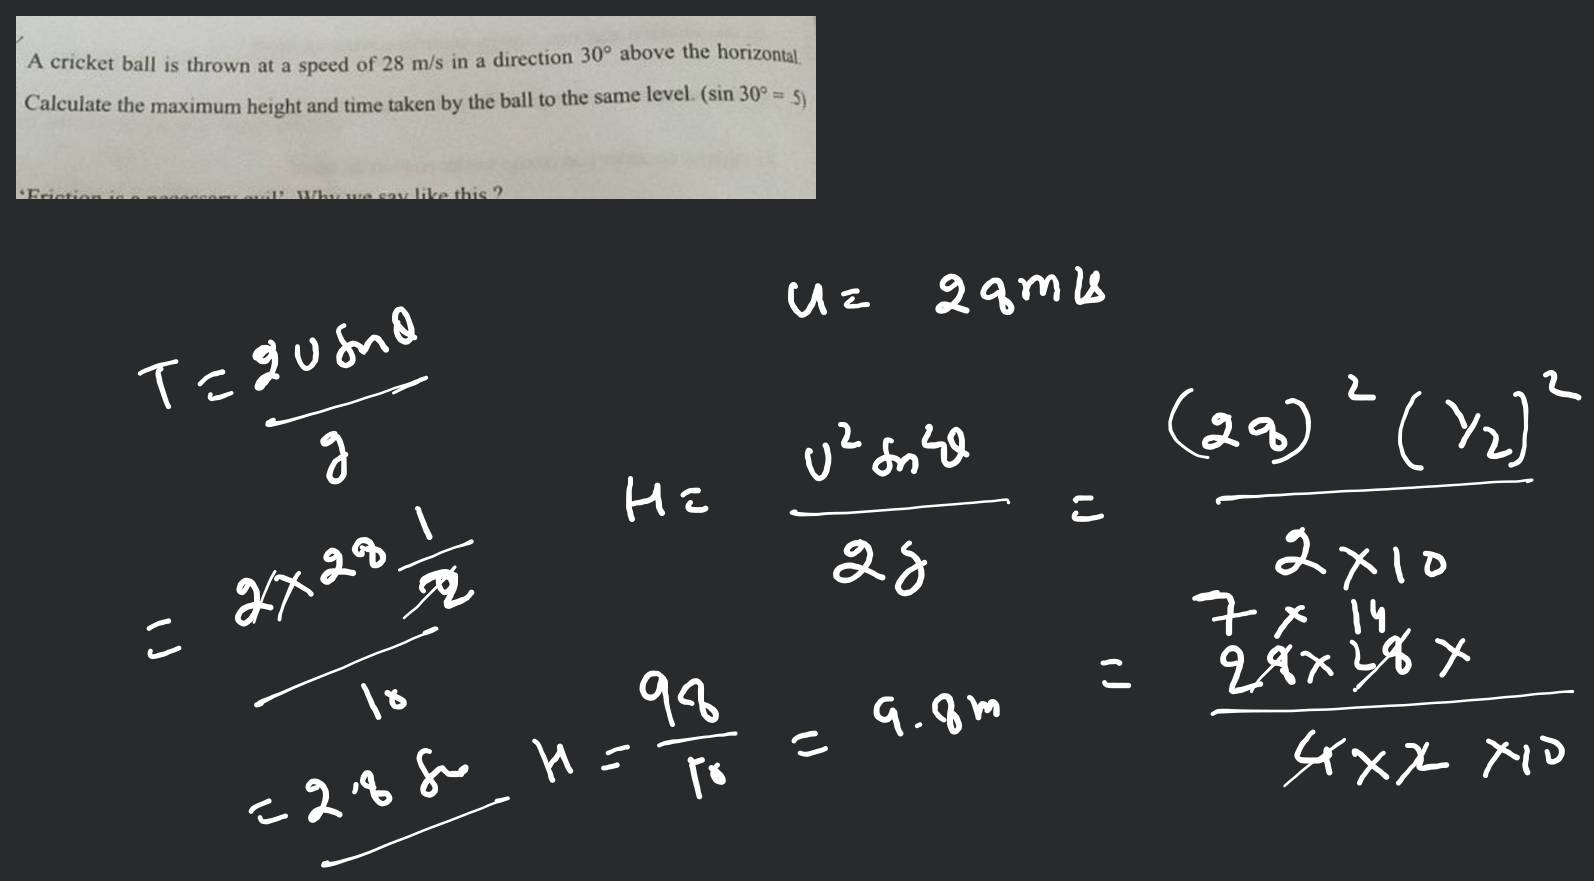 A cricket ball is thrown at a speed of 28 m/s in a direction 30° above the horizontal.
Calculate the maximum height and time taken by the ball to the same level. (sin 30° = .5)
'Friction is a necessary evil'. Why we say like this ?
u = 28 m/s
T = 2u sinθ / g
= 2 × 28 1/2 / 10
= 2.8 sec
H = u² sin²θ / 2g = (28)² (1/2)² / 2 × 10
7 × 14
= 28 × 28 × / 4 × 2 × 10
H = 98 / 10 = 9.8 m